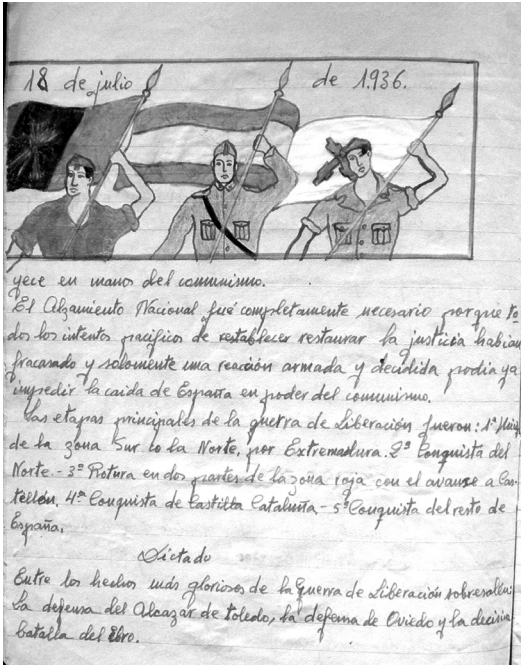 18 de julio de 1.936.
yece en manos del comunismo.
El Alzamiento Nacional fué completamente necesario porque to-
dos los intentos pacificos de restablecer restaurar la justicia habian
fracasado y solamente una reacción armada y decidida podia ya
impedir la caida de España en poder del comunismo.
Las etapas principales de la guerra de Liberación fueron: 1ª
de la zona Sur co la Norte, por Extremadura. 2ª Conquista del
Norte.- 3ª Rotura en dos partes de la zona roja con el avance a Cas-
tellón. 4ª Conquista de Castilla Cataluña - 5ª Conquista del resto de
España.
Dictado
Entre los hechos más gloriosos de la Guerra de Liberación sobresalen:
La defensa del Alcazar de toledo, la defensa de Oviedo y la decisiva
batalla del Ebro.